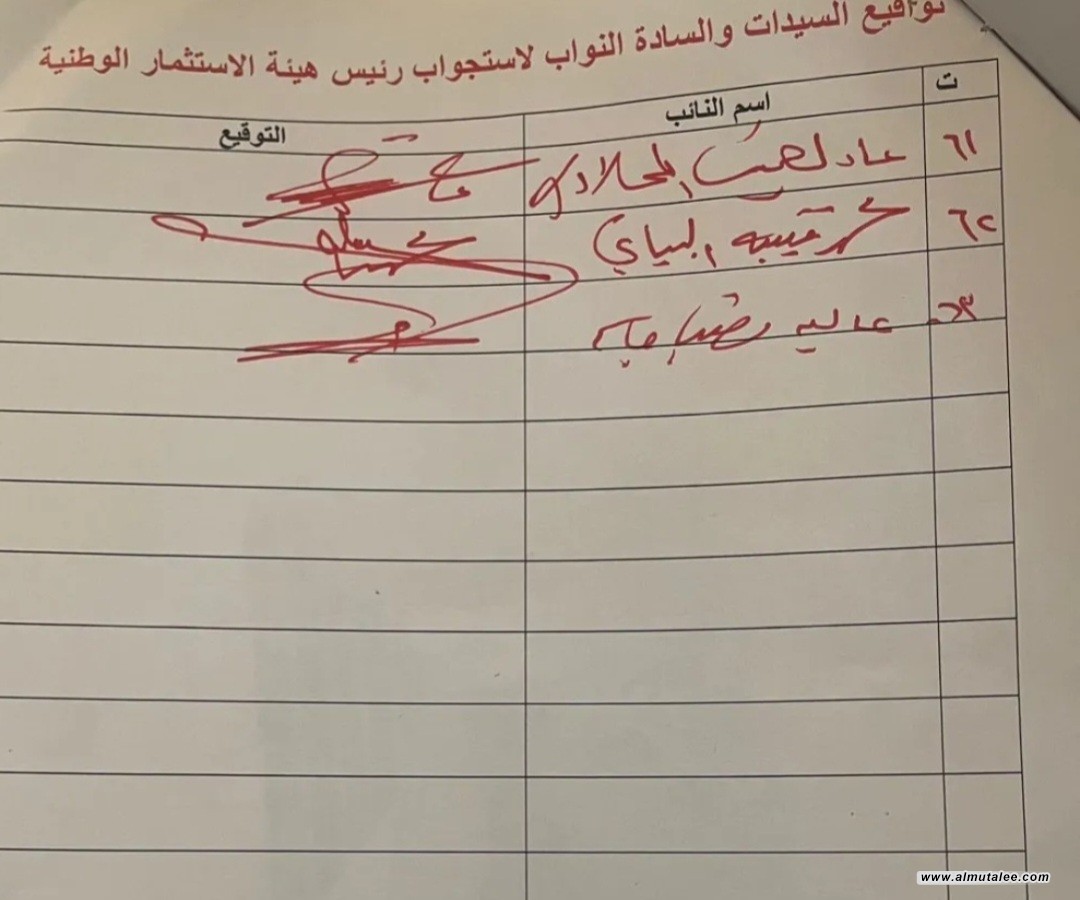 تواقيع السيدات والسادة النواب لاستجواب رئيس هيئة الاستثمار الوطنية
ت اسم النائب التوقيع
٦١ المحلاوي
٦٢ محمد قتيبة البياتي
٦٣ عالية
www.almutalee.com